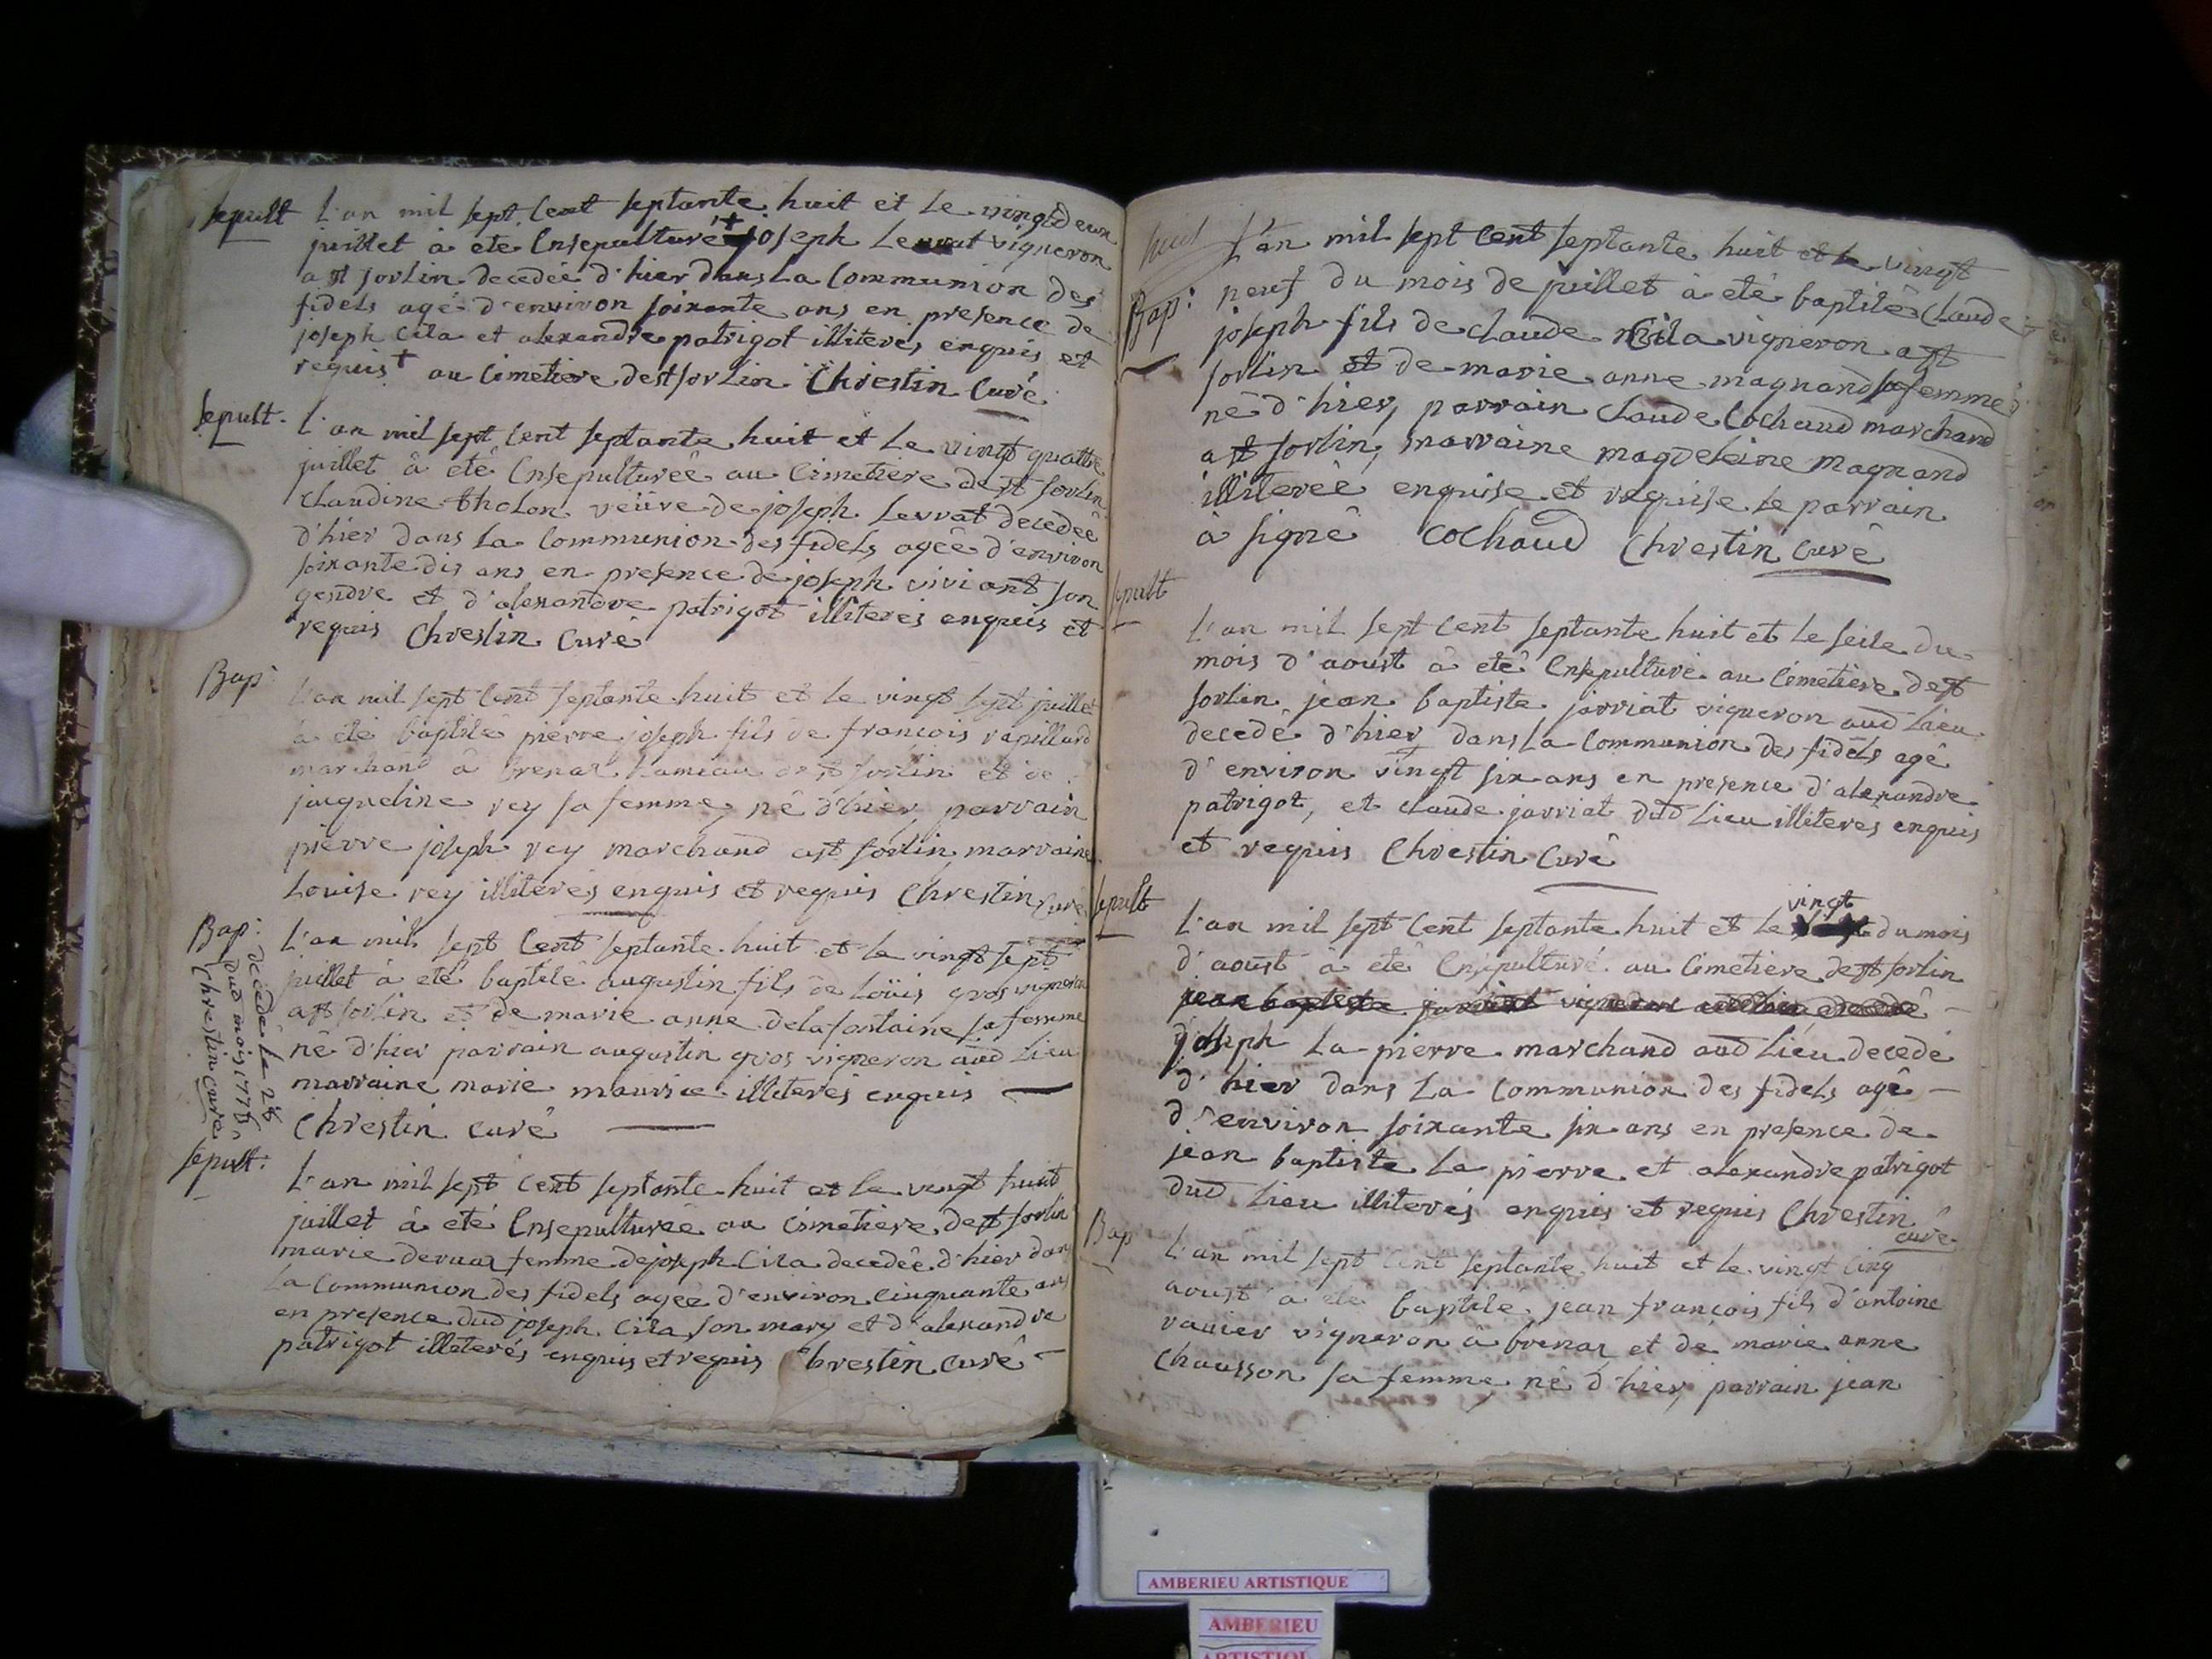 sepult
L'an mil sept cent septante huit et le vingt deux
juillet à été Ensepulturé + joseph Levrat vigneron
a st sorlin decedeé d'hier dans La Communion des
fidels agé d'environ soixante ans en presence de
joseph Cila et alexandre patrigot illiteres enquis et
requis + au Cimetiere de st sorlin Chrestin Curé
sepult.
L'an mil sept cent septante huit et Le vingt quattre
juillet â eté Ensepultureê au Cimetiere de st sorlin
Claudine tholon veüve de joseph Levrat decedeê
d'hier dans La Communion des fidels ageê d'environ
soixante dis ans en presence de joseph viviant son
gendre et d'alexandre patrigot illiterés enquis et
requis Chrestin Curé
Bap:
L'an mil sept Cent septante huit et le vingt sept juillet
à eté baptisé pierre joseph fils de françois rapillard
marchand â brenaz hameau de st sorlin et de
jacqueline rey sa femme, né d'hier, parrain
pierre joseph rey marchand a st sorlin marraine
Louise rey illiterés enquis et requis Chrestin Curé
Bap:
L'an mil sept Cent septante huit et le vingt sept
juillet à eté baptisê augustin fils de Loüis gros vigneron
a st sorlin et de marie anne delafontaine sa femme
né d'hier parrain augustin gros vigneron aud Lieu
marraine marie maurice illiterés enquis
Chrestin curé
decedé le 28
dud mois 1778
Chrestin curé
sepult:
L'an mil sept cent septante huit et le vingt huit
juillet à eté Ensepultureê au Cimetiere de st sorlin
marie deruaz femme de joseph Cila decedeê d'hier dans
La Communion des fidels ageê d'environ cinquante ans
en presence dud joseph Cila son mary et d'alexandre
patrigot illiterés enquis et requis Chrestin curé
Bap:
L'an mil sept cent septante huit et le vingt
neuf du mois de juillet à eté baptisé Claude
joseph fils de claude Cila vigneron a st
sorlin et de marie anne magnand sa femme
né d'hier, parrain Claude Cochaud marchand
a st sorlin, marraine magdeleine magnand
illitereê enquise et requise le parrain
à signê Cochaud Chrestin curé
sepult
L'an mil sept cent septante huit et Le seise du
mois d'aoust à eté Ensepulturé au Cimetiere de st
sorlin jean baptiste jarriat vigneron aud Lieu
decedé d'hier dans La Communion des fidels agê
d'environ vingt six ans en presence d'alexandre
patrigot, et claude jarriat dud Lieu illiteres enquis
et requis Chrestin Curê
sepult
L'an mil sept Cent septante huit et Le vingt du mois
d'aoust à eté Ensepulturé au Cimetiere de st sorlin
jean baptiste jarriat vigneron aud lieu decedé
joseph La pierre marchand aud Lieu decedé
d'hier dans La Communion des fidels agê
d'environ soixante six ans en presence de
jean baptiste La pierre et alexandre patrigot
dud Lieu illiterés enquis et requis Chrestin
curé
Bap
L'an mil sept cent septante huit et le vingt cinq
aoust à eté baptisé jean françois fils d'antoine
ravier vigneron â brenaz et de marie anne
Chausson sa femme né d'hier, parrain jean
AMBERIEU ARTISTIQUE
AMBERIEU
ARTISTIQUE